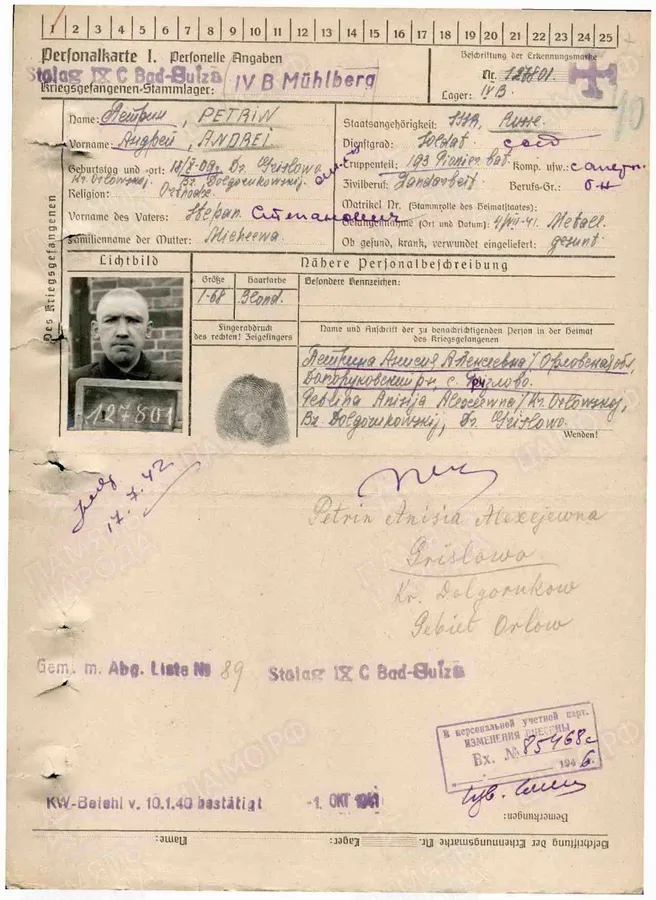 1 2 3 4 5 6 7 8 9 10 11 12 13 14 15 16 17 18 19 20 21 22 23 24 25
Personalkarte I. Personelle Angaben
Stalag IX C Bad-Sulza
IV B Mühlberg
Kriegsgefangenen-Stammlager:
Beschriftung der Erkennungsmarke
Nr. 127801
Lager: IV B
40
Des Kriegsgefangenen
Name: Петрин, PETRIN
Vorname: Андрей, ANDREI
Geburtstag und -ort:
Kr. Orlowskoj. Bz. Dolgorukowskij.
Religion:
Vorname des Vaters: Stepan Степанович
Familienname der Mutter: Micheewa
Staatsangehörigkeit: Russe.
Dienstgrad: Soldat
Truppenteil: 193 Pionier bat. Komp. usw.:
Zivilberuf: Landarbeit Berufs-Gr.:
Matrikel Nr. (Stammrolle des Heimatstaates):
Gefangennahme (Ort und Datum):
Ob gesund, krank, verwundet eingeliefert: gesund
Lichtbild
127801
Nähere Personalbeschreibung
Größe Haarfarbe Besondere Kennzeichen:
1-68 Blond.
Fingerabdruck
des rechten! Zeigefingers
Name und Anschrift der zu benachrichtigenden Person in der Heimat
des Kriegsgefangenen
Петрина Анисия Алексеевна / Орловская обл,
с.
Petrina Anisija Alexeewna / Kr. Orlowskoj,
Bz. Dolgorukowskij, Dr. Grislowo.
Wenden!
17.7.42
Petrin Anisia Alexejewna
Grislowo
Kr. Dolgorukow
Gebiet Orlow
Gem. m. Abg. Liste № 89 Stalag IX C Bad-Sulza
В персональной учетной карт.
ИЗМЕНЕНИЯ ВНЕСЕНЫ
Вх. № 85468с
194 6.
KW-Befehl v. 10.1.40 bestätigt -1. OKT 1941
Bemerkungen:
Beschriftung der Erkennungsmarke Nr. Lager: Name:
ПАМЯТЬ НАРОДА
ЦАМО.РФ